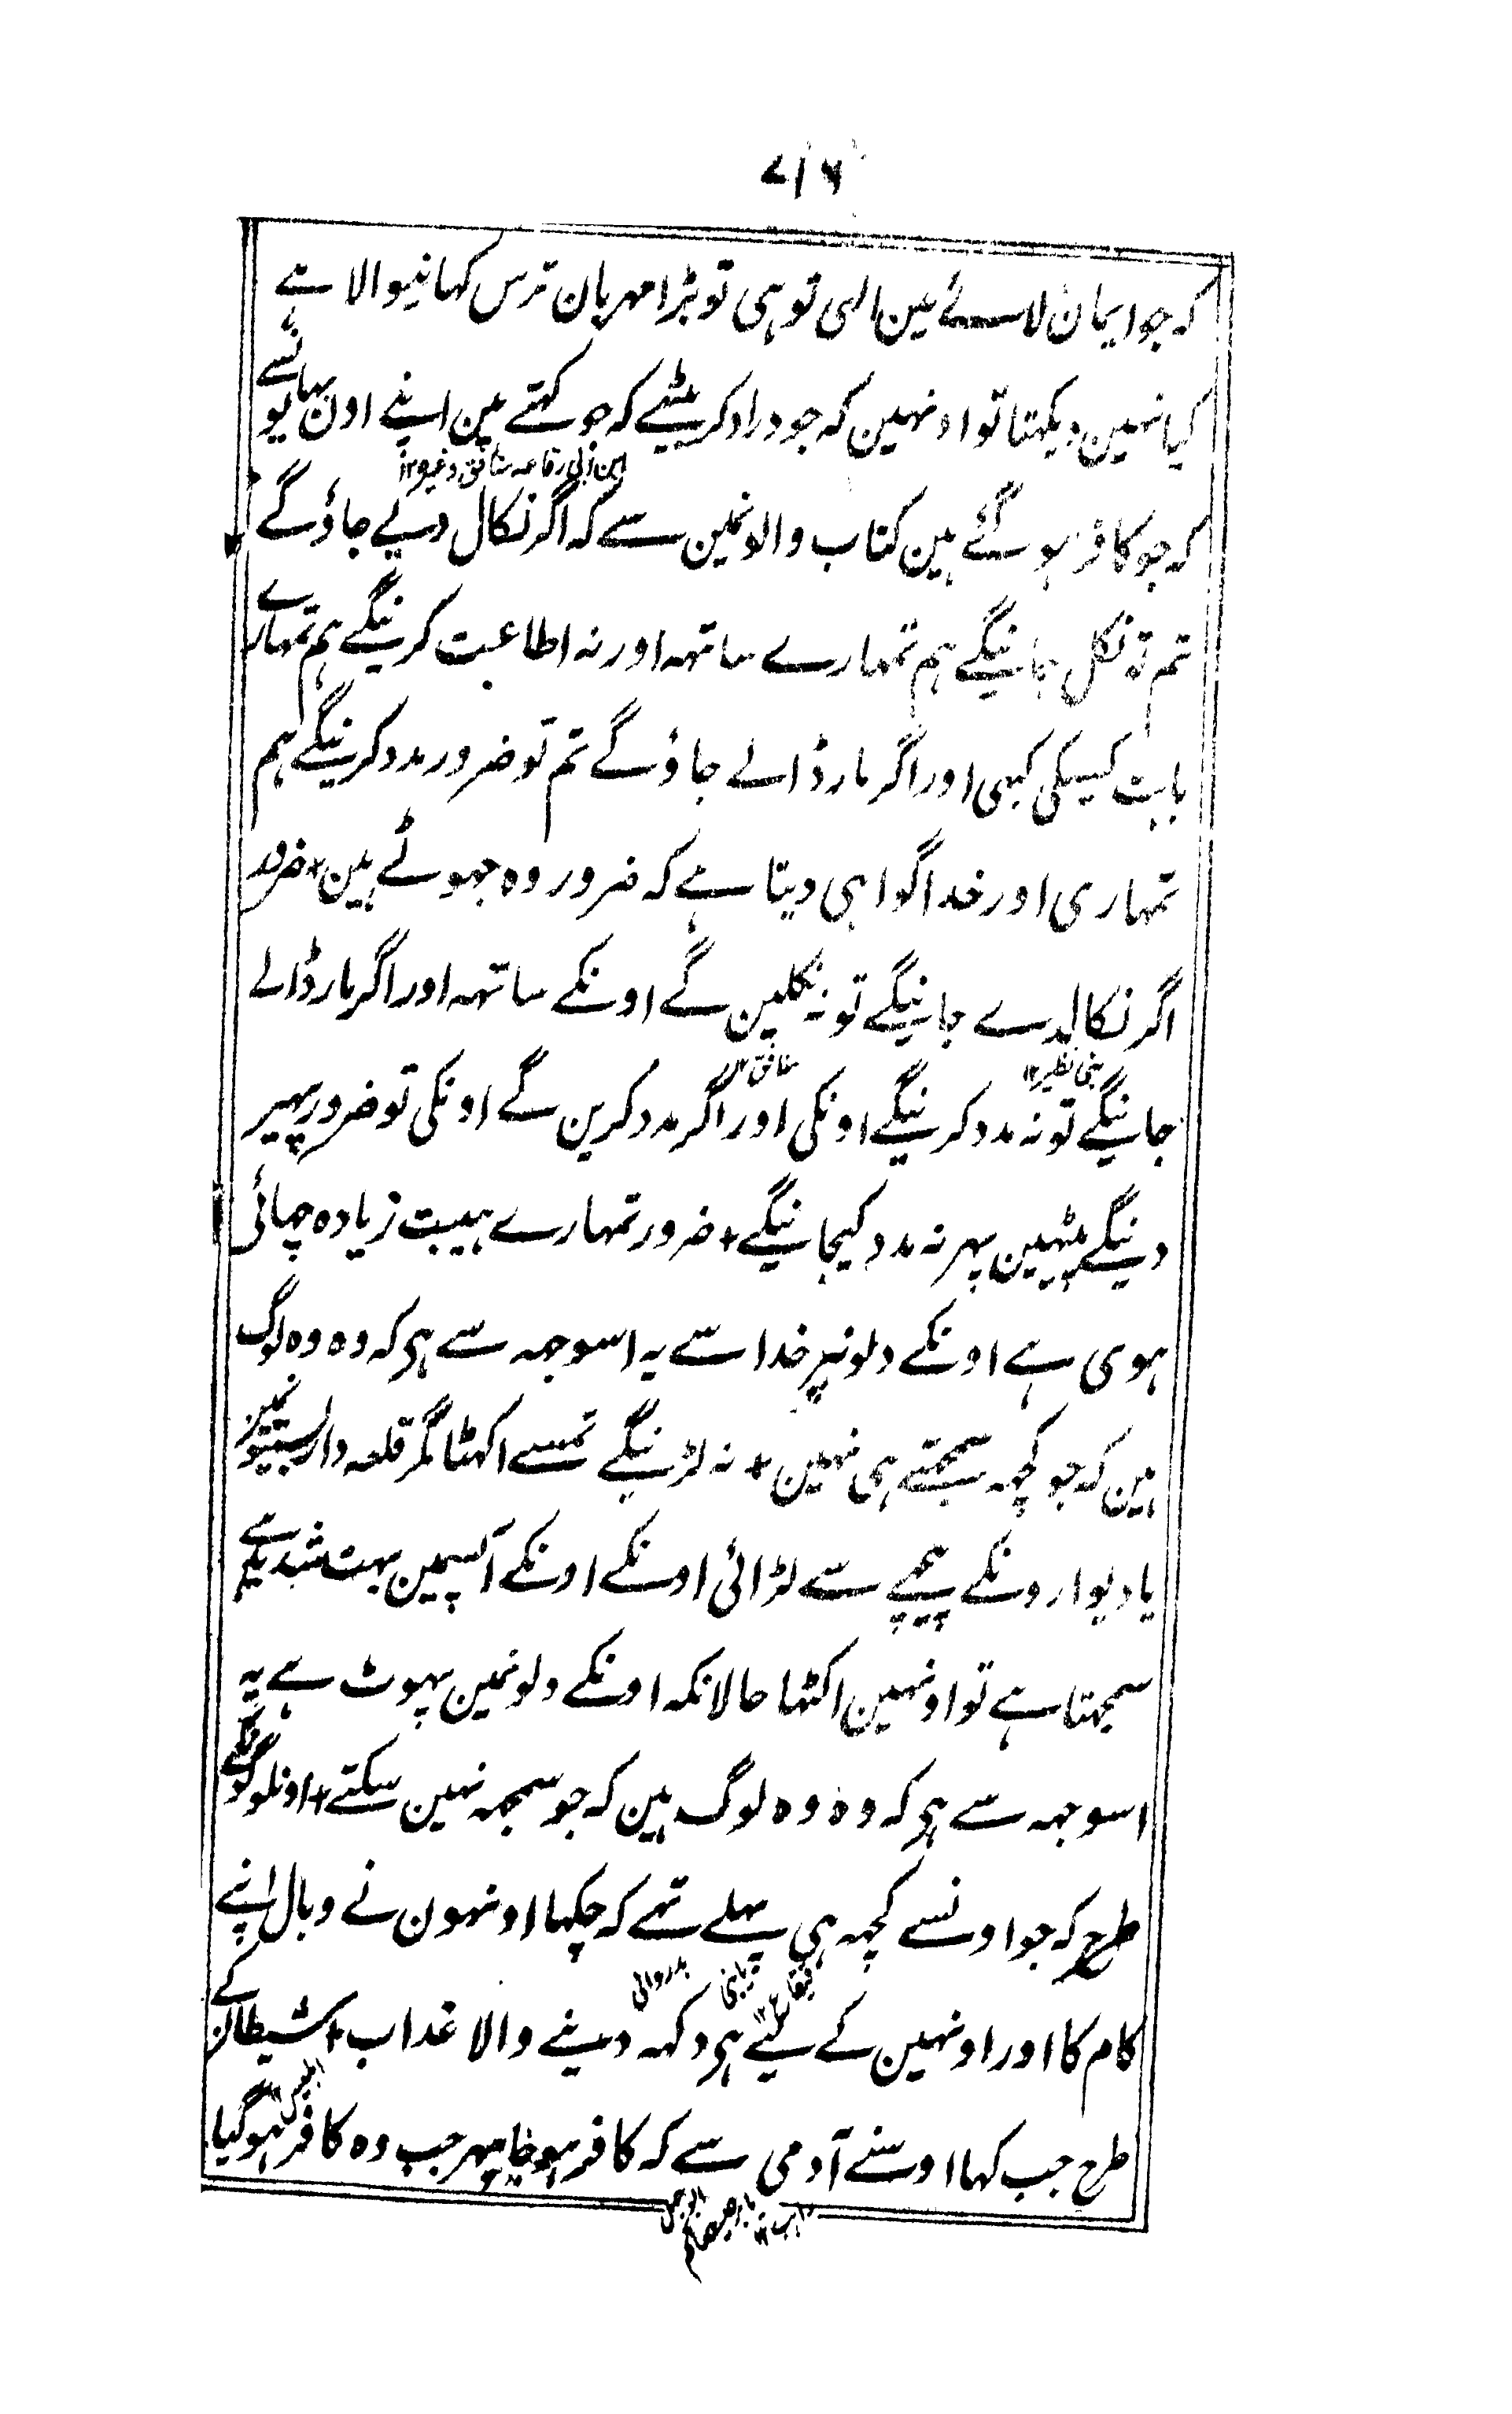 ۷۱۶
کہ جو ایمان لائے ہین الٰہی تو ہی تو بڑا مہربان ترس کہانیوالا ہے
کیا نہین دیکہتا تو اونہین کہ جو درادکر بیٹھے کہ جو کہتے ہین اپنے اون بہائیونسے
ابن ابی رفاعہ منافق وغیرہ ۱۲
کہ جو کافر ہو گئے ہین کتاب والونمین سے کہ اگر نکال دیے جاؤ گے
تم تو نکل جائینگے ہم تمہارے ساتہہ اور نہ اطاعت کرینگے ہم تمہارے
بابت کسیکی کبہی اور اگر مار ڈالے جاؤ گے تم تو ضرور مدد کرینگے ہم
تمہاری اور خدا گواہی دیتا ہے کہ ضرور وہ جہوٹے ہین + ضرور
اگر نکالدے جائینگے تو نہ نکلین گے اونکے ساتہہ اور اگر مار ڈالے
بنی نظیر ۱۲ منافق ۱۲
جائینگے تو نہ مدد کرینگے اونکی اور اگر مدد کرین گے اونکی تو ضرور پہیر
دینگے پیٹہین پہر نہ مدد کیجائینگے + ضرور تمہارے ہیبت زیادہ چہائی
ہوی ہے اونکے دلونپر خدا سے یہ اسوجہہ سے ہی کہ وہ وہ لوگ
ہین کہ جو کچہہ سمجہتے ہی نہین + نہ لڑینگے تمسے اکہٹا مگر قلعہ دار بستیونمین
یا دیوارونکے پیچہے سے لڑائی اونکے اونکے آپسمین بہت شدید ہے
سمجہتا ہے تو اونہین اکٹہا حالانکہ اونکے دلونمین پہوٹ ہے یہ
اسوجہہ سے ہی کہ وہ وہ لوگ ہین کہ جو سمجہہ نہین سکتے + اونلوگونکے
طرح کہ جو اونسے کچہہ ہی پہلے تہے کہ چکہا اونہون نے وبال اپنے
بدروالی
کام کا اور اونہین کے لیے ہی دکہہ دینے والا عذاب + شیطان کے
ابلیس
طرح جب کہا اوسنے آدمی سے کہ کافر ہو جا پہر جب وہ کافر ہو گیا